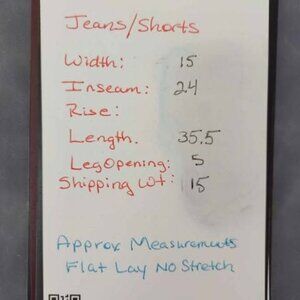 Jeans/Shorts
Width: 15
Inseam: 24
Rise:
Length. 35.5
Leg Opening: 5
Shipping Wt: 15
Approx Measurements
Flat Lay No Stretch